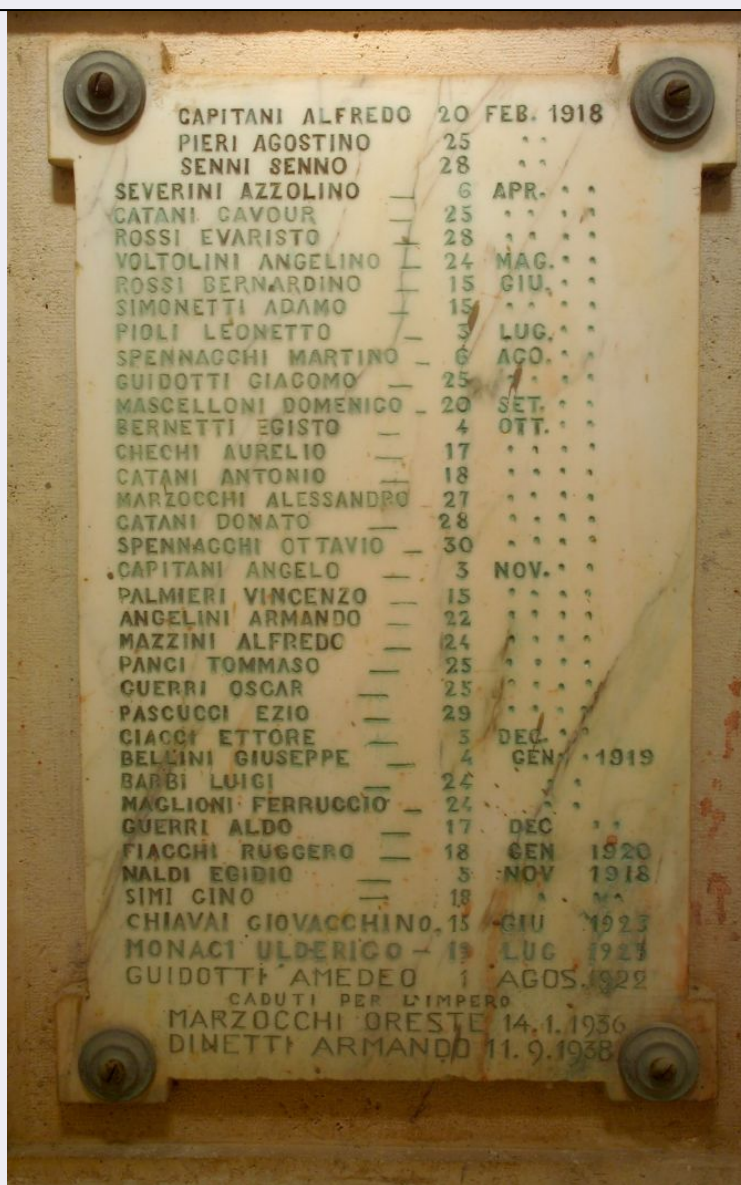 CAPITANI ALFREDO 20 FEB. 1918
PIERI AGOSTINO 25 " "
SENNI SENNO 28 " "
SEVERINI AZZOLINO — 6 APR. " "
CATANI CAVOUR — 25 " " " "
ROSSI EVARISTO — 28 " " " "
VOLTOLINI ANGELINO — 24 MAG. " "
ROSSI BERNARDINO — 15 GIU. " "
SIMONETTI ADAMO 15 " " " "
PIOLI LEONETTO — 3 LUG. " "
SPENNACCHI MARTINO — 6 AGO. " "
GUIDOTTI GIACOMO — 25 " " " "
MASCELLONI DOMENICO — 20 SET. " "
BERNETTI EGISTO — 4 OTT. " "
CHECHI AURELIO — 17 " " " "
CATANI ANTONIO — 18 " " " "
MARZOCCHI ALESSANDRO 27 " " " "
CATANI DONATO — 28 " " " "
SPENNACCHI OTTAVIO — 30 " " " "
CAPITANI ANGELO — 3 NOV. " "
PALMIERI VINCENZO — 15 " " " "
ANGELINI ARMANDO — 22 " " " "
MAZZINI ALFREDO — 24 " " " "
PANCI TOMMASO — 25 " " " "
GUERRI OSCAR — 25 " " " "
PASCUCCI EZIO — 29 " " " "
CIACCI ETTORE — 3 DEC. " "
BELLINI GIUSEPPE — 4 GEN. 1919
BARBI LUIGI — 24 " "
MAGLIONI FERRUCCIO — 24 " "
GUERRI ALDO — 17 DEC " "
FIACCHI RUGGERO — 18 GEN 1920
NALDI EGIDIO — 3 NOV 1918
SIMI GINO — 18 " "
CHIAVAI GIOVACCHINO. 15 GIU 1923
MONACI ULDERICO — LUG
GUIDOTTI AMEDEO 1 AGOS. 1922
CADUTI PER L'IMPERO
MARZOCCHI ORESTE 14.1.1936
DINETTI ARMANDO 11.9.1938